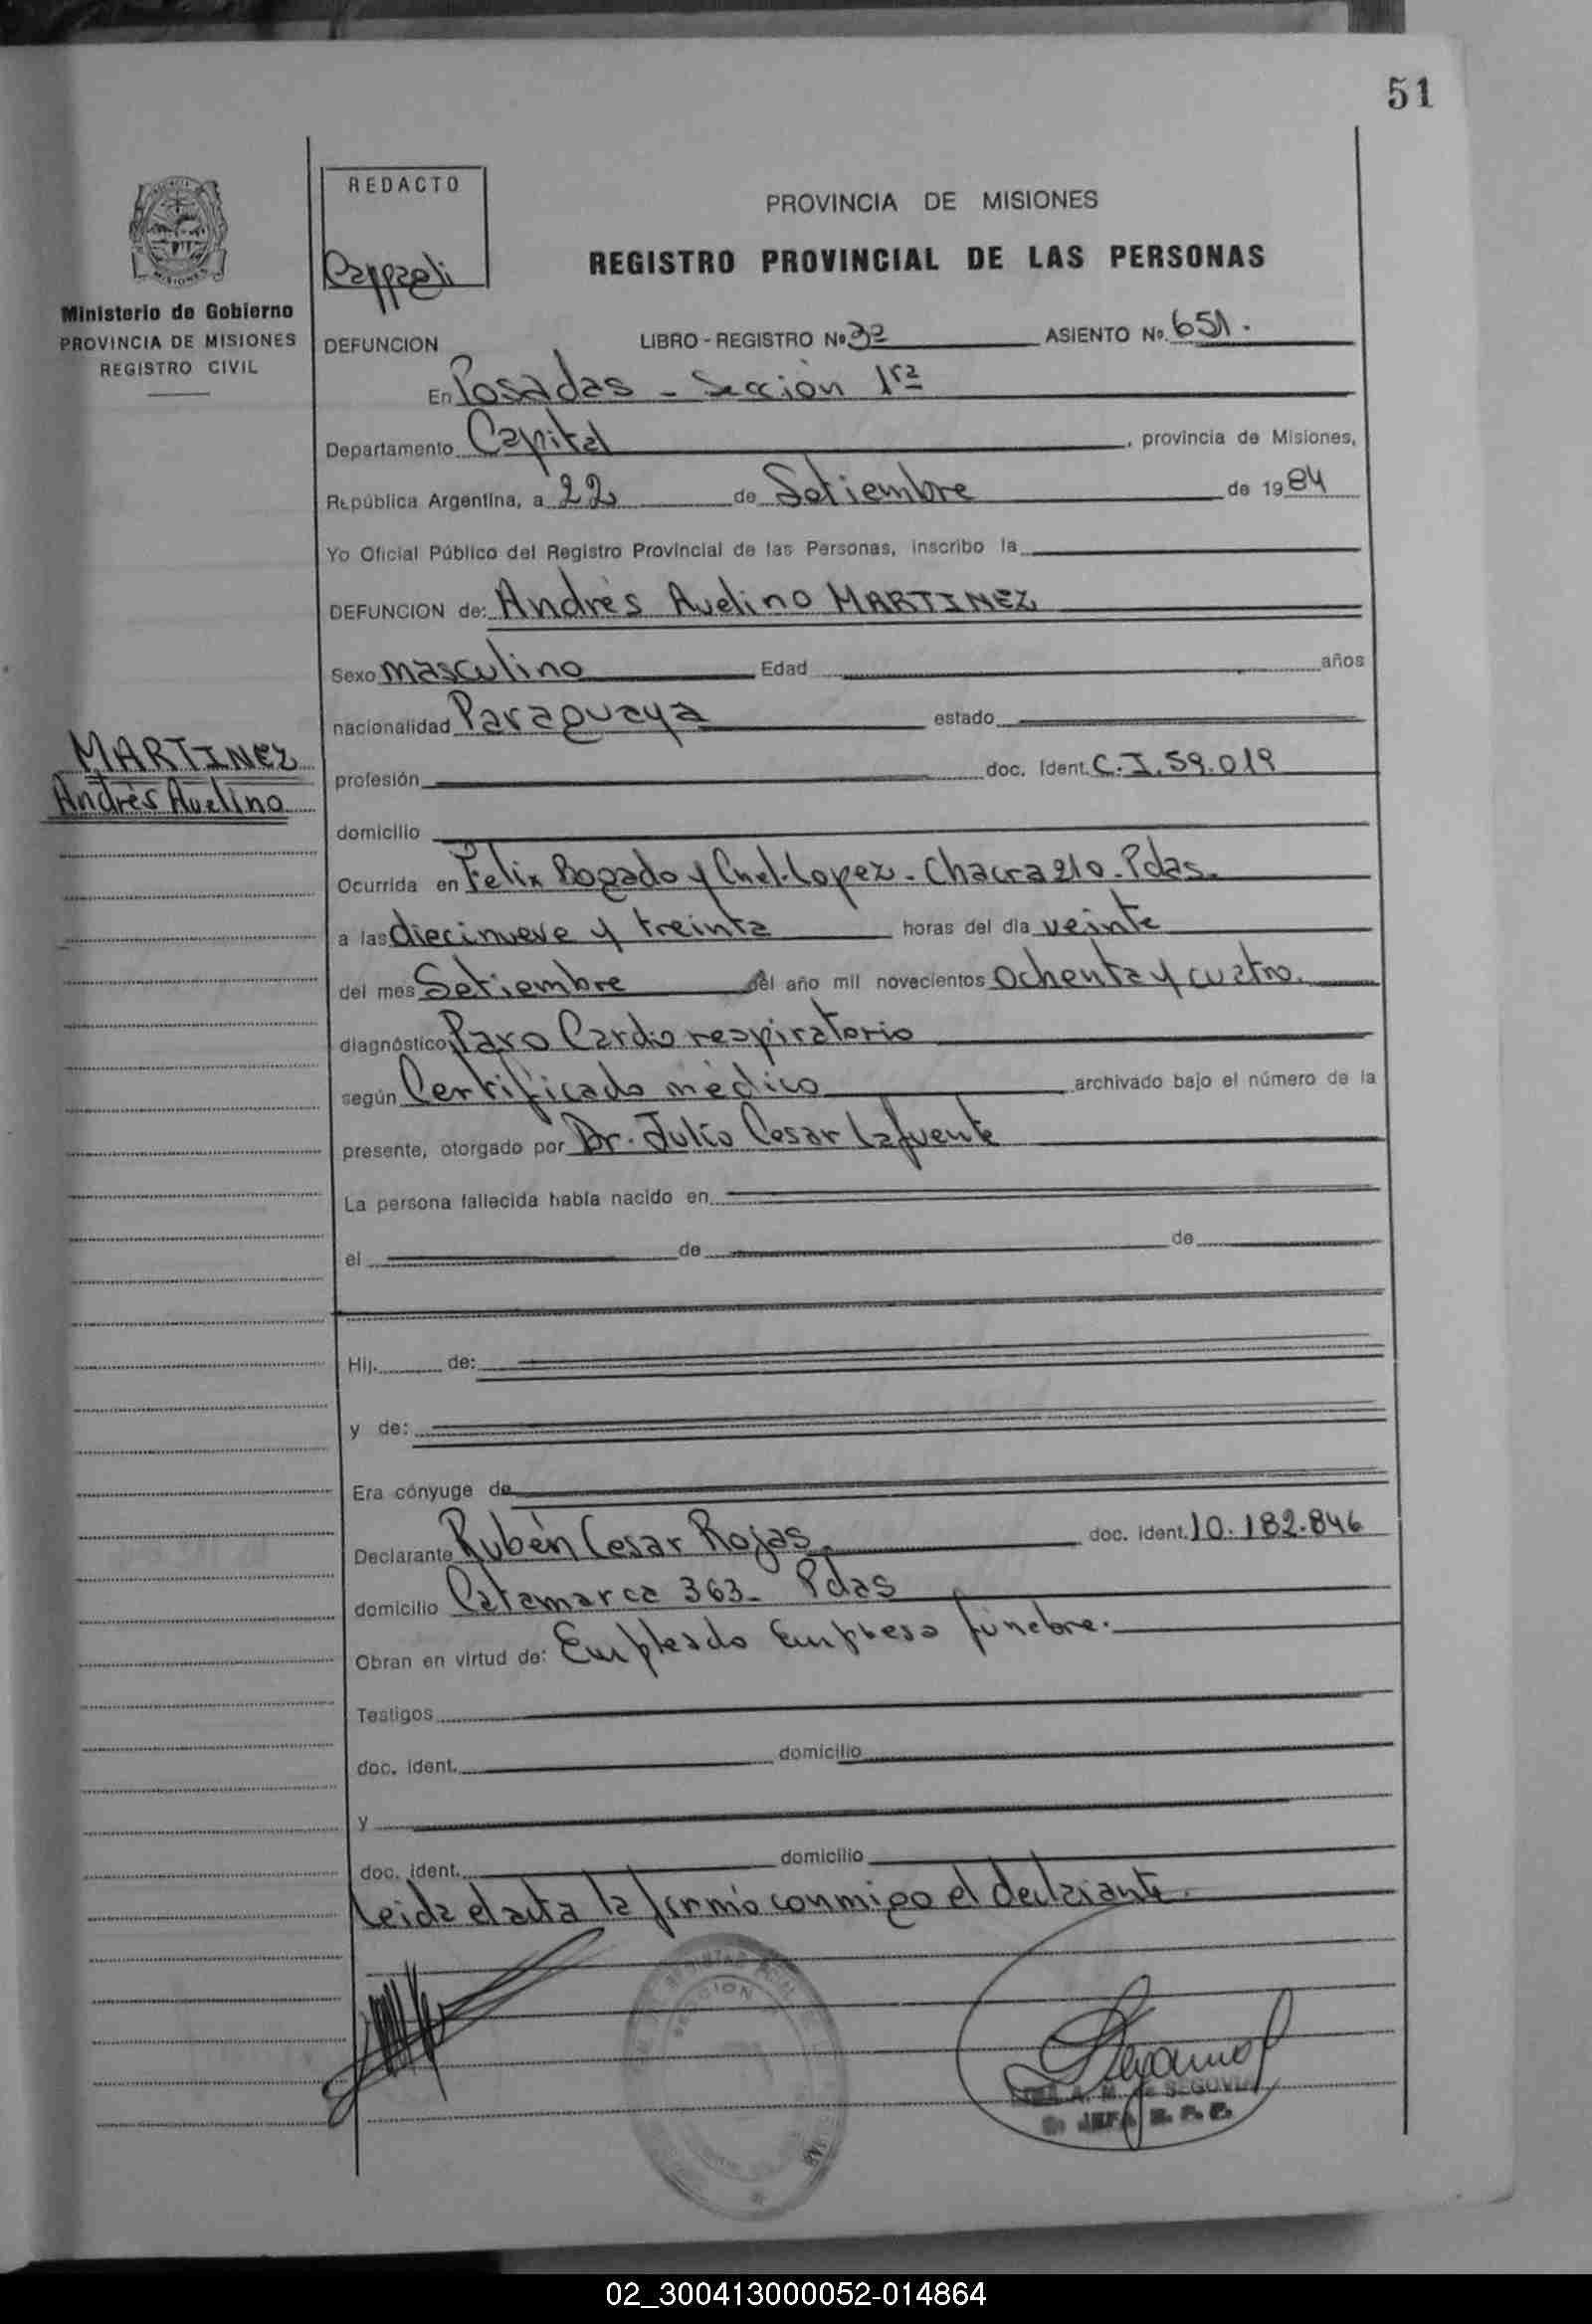 51
REDACTO
PROVINCIA DE MISIONES
REGISTRO PROVINCIAL DE LAS PERSONAS
Ministerio de Gobierno
PROVINCIA DE MISIONES
REGISTRO CIVIL
DEFUNCION LIBRO - REGISTRO Nº ASIENTO Nº. 651.
En Posadas - Sección 1ra
Departamento Capital, provincia de Misiones,
República Argentina, a 22 de Setiembre de 1984
Yo Oficial Público del Registro Provincial de las Personas, inscribo la
DEFUNCION de: Andrés Avelino MARTINEZ
Sexo masculino Edad años
nacionalidad Paraguaya estado
MARTINEZ
Andrés Avelino
profesión doc. Ident. C.I. 59.019
domicilio
Ocurrida en Felix Bogado y Cnel. Lopez - Chacra 210 - Pdas.
a las diecinueve y treinta horas del día veinte
del mes Setiembre del año mil novecientos ochenta y cuatro.
diagnóstico Paro Cardio respiratorio
según Certificado médico archivado bajo el número de la
presente, otorgado por Dr. Julio Cesar Lafuente
La persona fallecida había nacido en
el de de
Hij. de:
y de:
Era cónyuge de
Declarante Rubén Cesar Rojas. doc. ident. 10.182.846
domicilio Catamarca 363 - Pdas
Obran en virtud de: Empleado Empresa fúnebre.
Testigos
doc. ident. domicilio
y
doc. ident. domicilio
Leida el acta la firmó conmigo el declarante.
SECCION
A. M. de SEGOVIA
JEFA R. P. P.
02_300413000052-014864